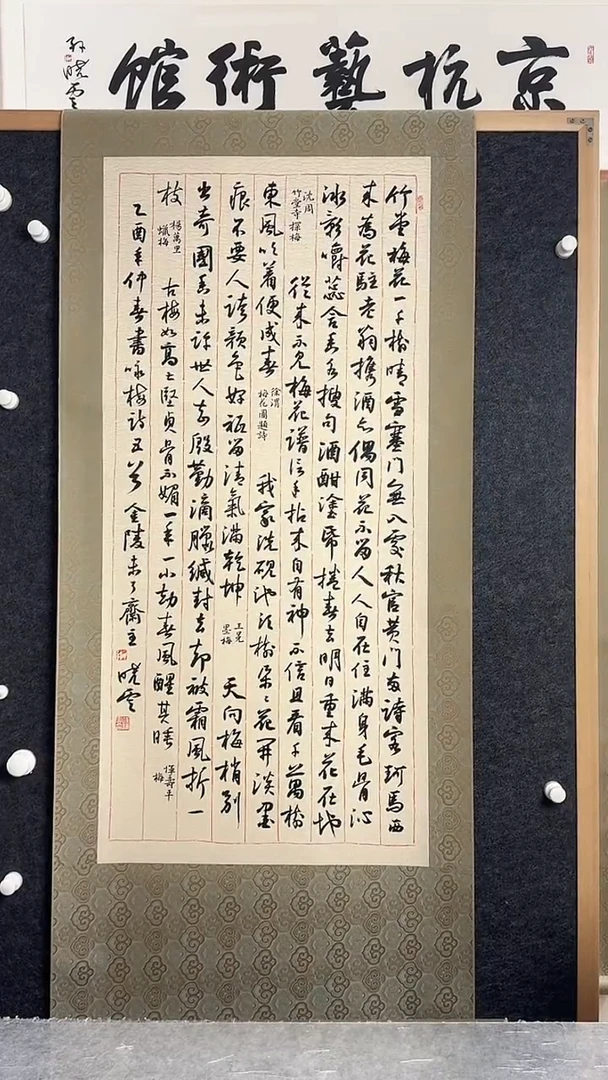 京杭藝術館
孙晓云
竹堂梅花一千樹晴雪塞門無入處秋官黄門兩詩客珂馬西
來為花駐老翁攜酒亦偶同花不留人人自在住滿身毛骨沁
冰影嚼蕊含香各搜句酒酣塗紙捲春去明日重來花在地
沈周
竹堂寺探梅
從來不見梅花譜信手拈來自有神不信且看千萬樹
東風吹着便成春
徐渭
梅花圖題詩
我家洗硯池頭樹朵〻花開淡墨
痕不要人誇顏色好祗留清氣滿乾坤
王冕
墨梅
天向梅梢別
出奇國香未許世人知殷勤滴臘緘封去却被霜風折一
枝
楊萬里
蠟梅
古梅如高士堅貞骨不媚一年一小劫春風醒其睡
惲壽平
梅
乙酉年仲春書咏梅詩五首金陵未了齋主
曉雲